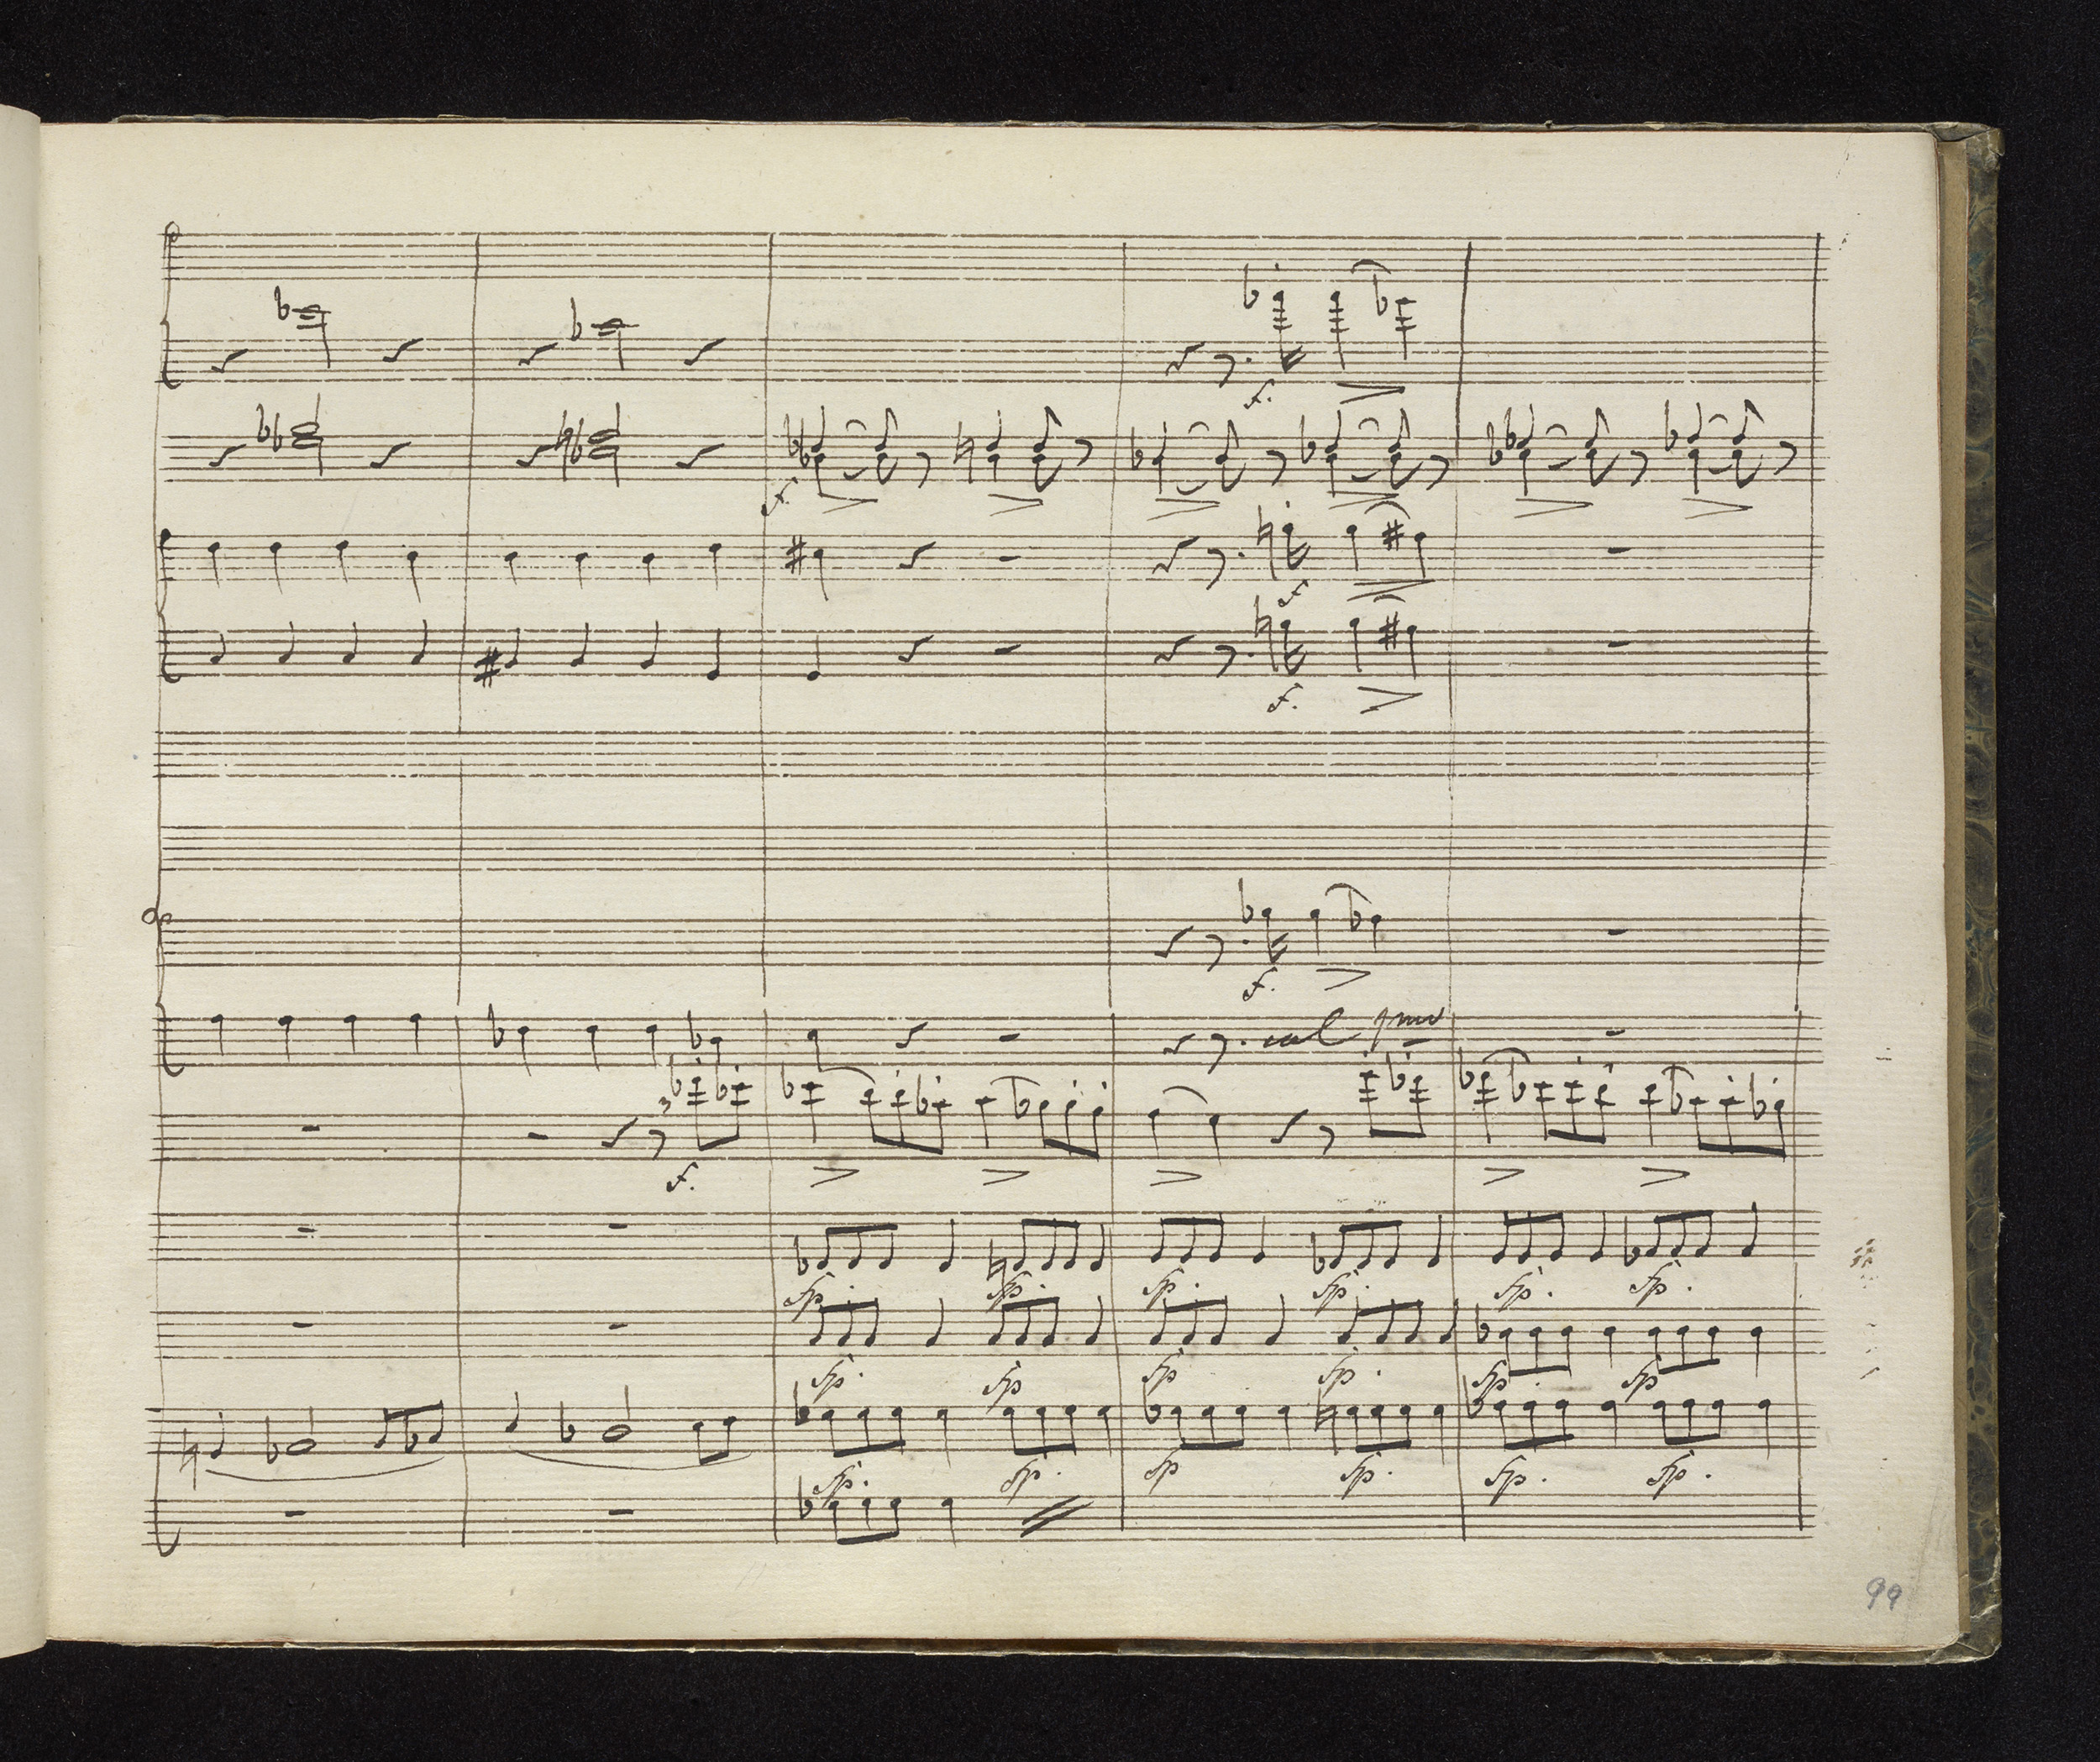 f.
f.
f
f.
f.
col 1mo
3
f.
fp. fp. fp. fp. fp. fp.
fp. fp fp fp. fp. fp
fp. fp. fp fp. fp. fp.
99